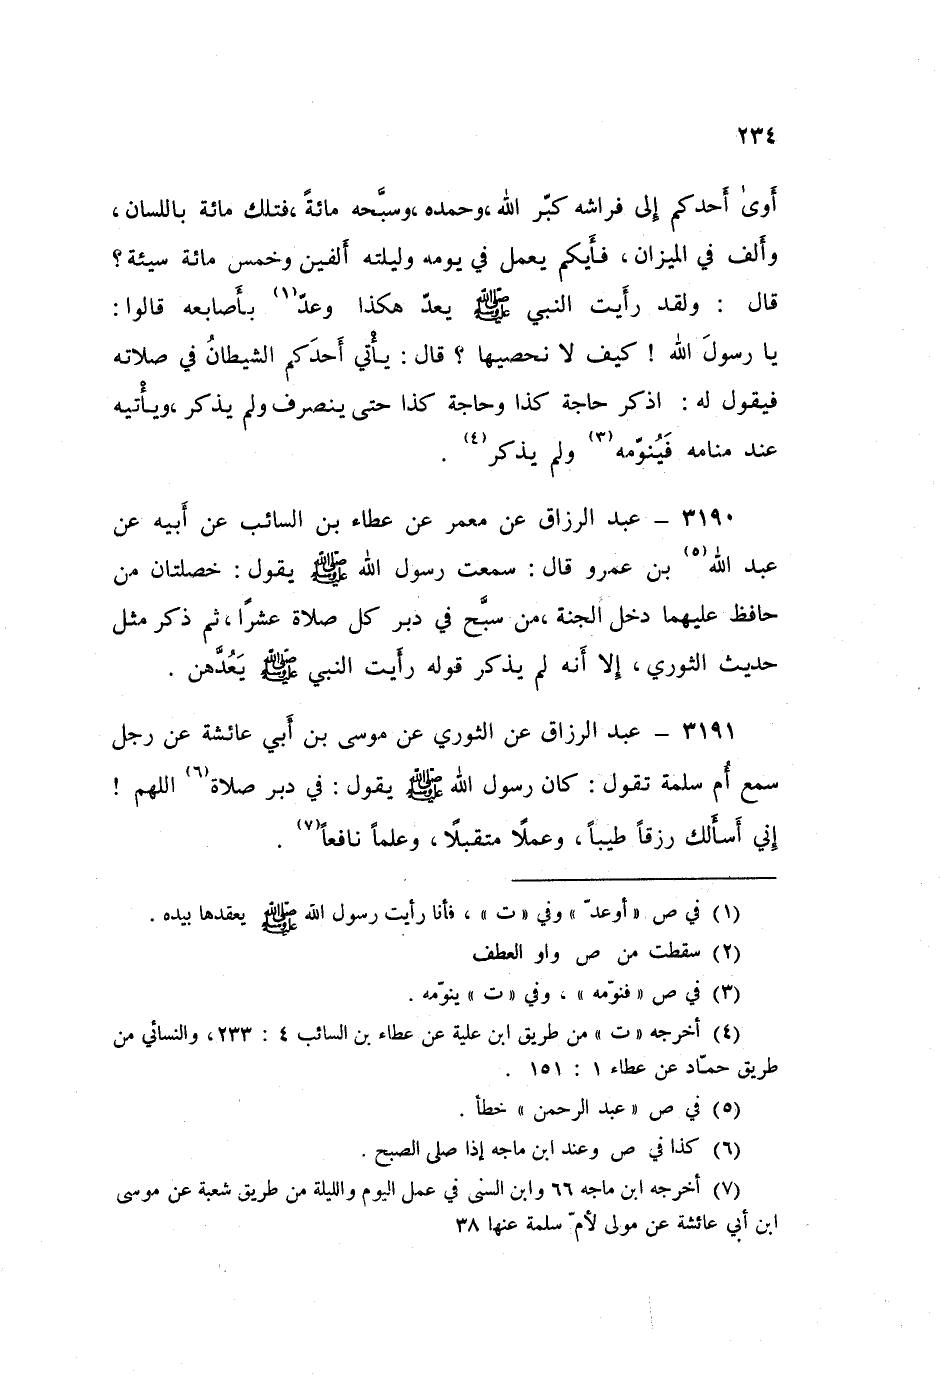 ٢٣٤
أَوىٰ أَحدكم إِلى فراشه كبّر الله ،وحمده ،وسبَّحه مائةً ،فتلك مائة باللسان ،
وأَلف في الميزان ، فأَيكم يعمل في يومه وليلته أَلفين وخمس مائة سيئة ؟
قال : ولقد رأَيت النبي ﷺ يعدّ هكذا وعدّ(١) بأَصابعه قالوا :
يا رسولَ الله ! كيف لا نحصيها ؟ قال : يأْتي أَحدَكم الشيطانُ في صلاته
فيقول له : اذكر حاجة كذا وحاجة كذا حتى ينصرف ولم يذكر ،ويأْتيه
عند منامه فَيُنوّمه(٣) ولم يذكر(٤) .
٣١٩٠ – عبد الرزاق عن معمر عن عطاء بن السائب عن أَبيه عن
عبد الله(٥) بن عمرو قال : سمعت رسول الله ﷺ يقول : خصلتان من
حافظ عليهما دخل الجنة ،من سبَّح في دبر كل صلاة عشرًا ،ثم ذكر مثل
حديث الثوري ، إِلا أَنه لم يذكر قوله رأَيت النبي ﷺ يَعُدَّهن .
٣١٩١ – عبد الرزاق عن الثوري عن موسى بن أَبي عائشة عن رجل
سمع أُم سلمة تقول : كان رسول الله ﷺ يقول : في دبر صلاة(٦) اللهم !
إِني أَسأَلك رزقاً طيباً ، وعملًا متقبلًا ، وعلماً نافعاً(٧) .
(١) في ص « أوعدّ » وفي « ت » ، فأنا رأيت رسول الله ﷺ يعقدها بيده .
(٢) سقطت من ص واو العطف
(٣) في ص « فنوّمه » ، وفي « ت » ينوّمه .
(٤) أخرجه « ت » من طريق ابن علية عن عطاء بن السائب ٤ : ٢٣٣ ، والنسائي من
طريق حمّاد عن عطاء ١ : ١٥١ .
(٥) في ص « عبد الرحمن » خطأ .
(٦) كذا في ص وعند ابن ماجه إذا صلى الصبح .
(٧) أخرجه ابن ماجه ٦٦ وابن السنى في عمل اليوم والليلة من طريق شعبة عن موسى
ابن أبي عائشة عن مولى لأمّ سلمة عنها ٣٨